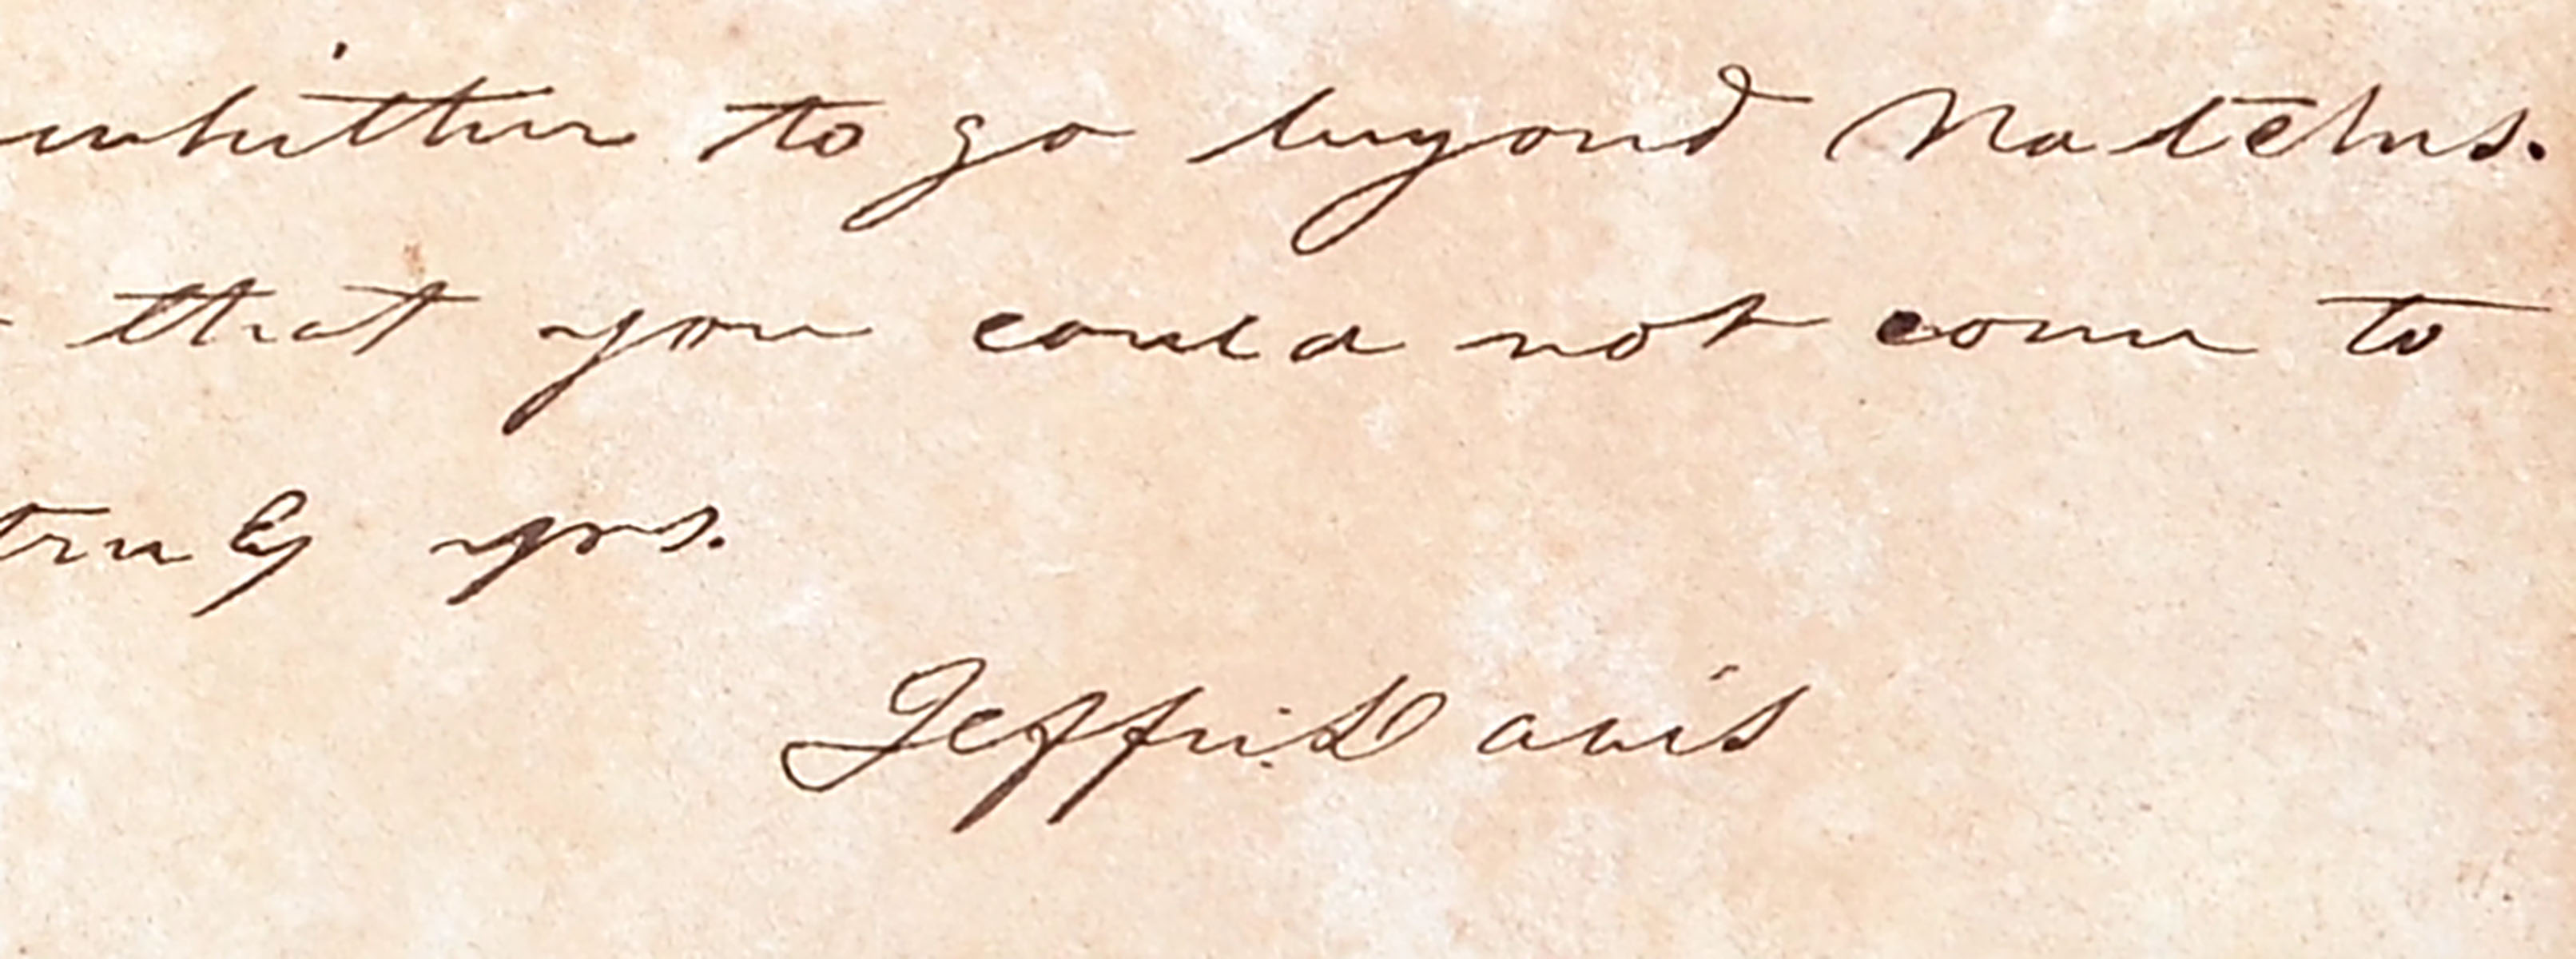 whither to go beyond Natchez.
that you could not come to
truly yrs.
Jeffn: Davis